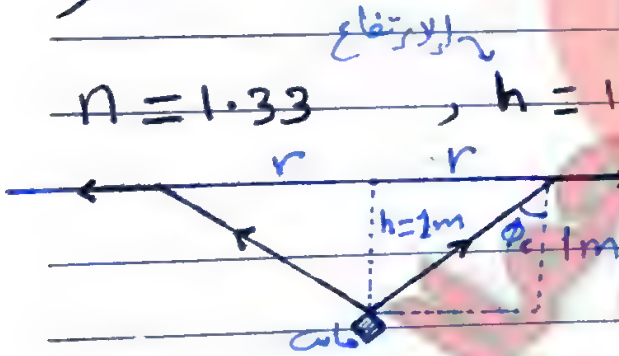 الارتفاع
n = 1.33 , h = 1
r r
h=1m
ϕc 1m